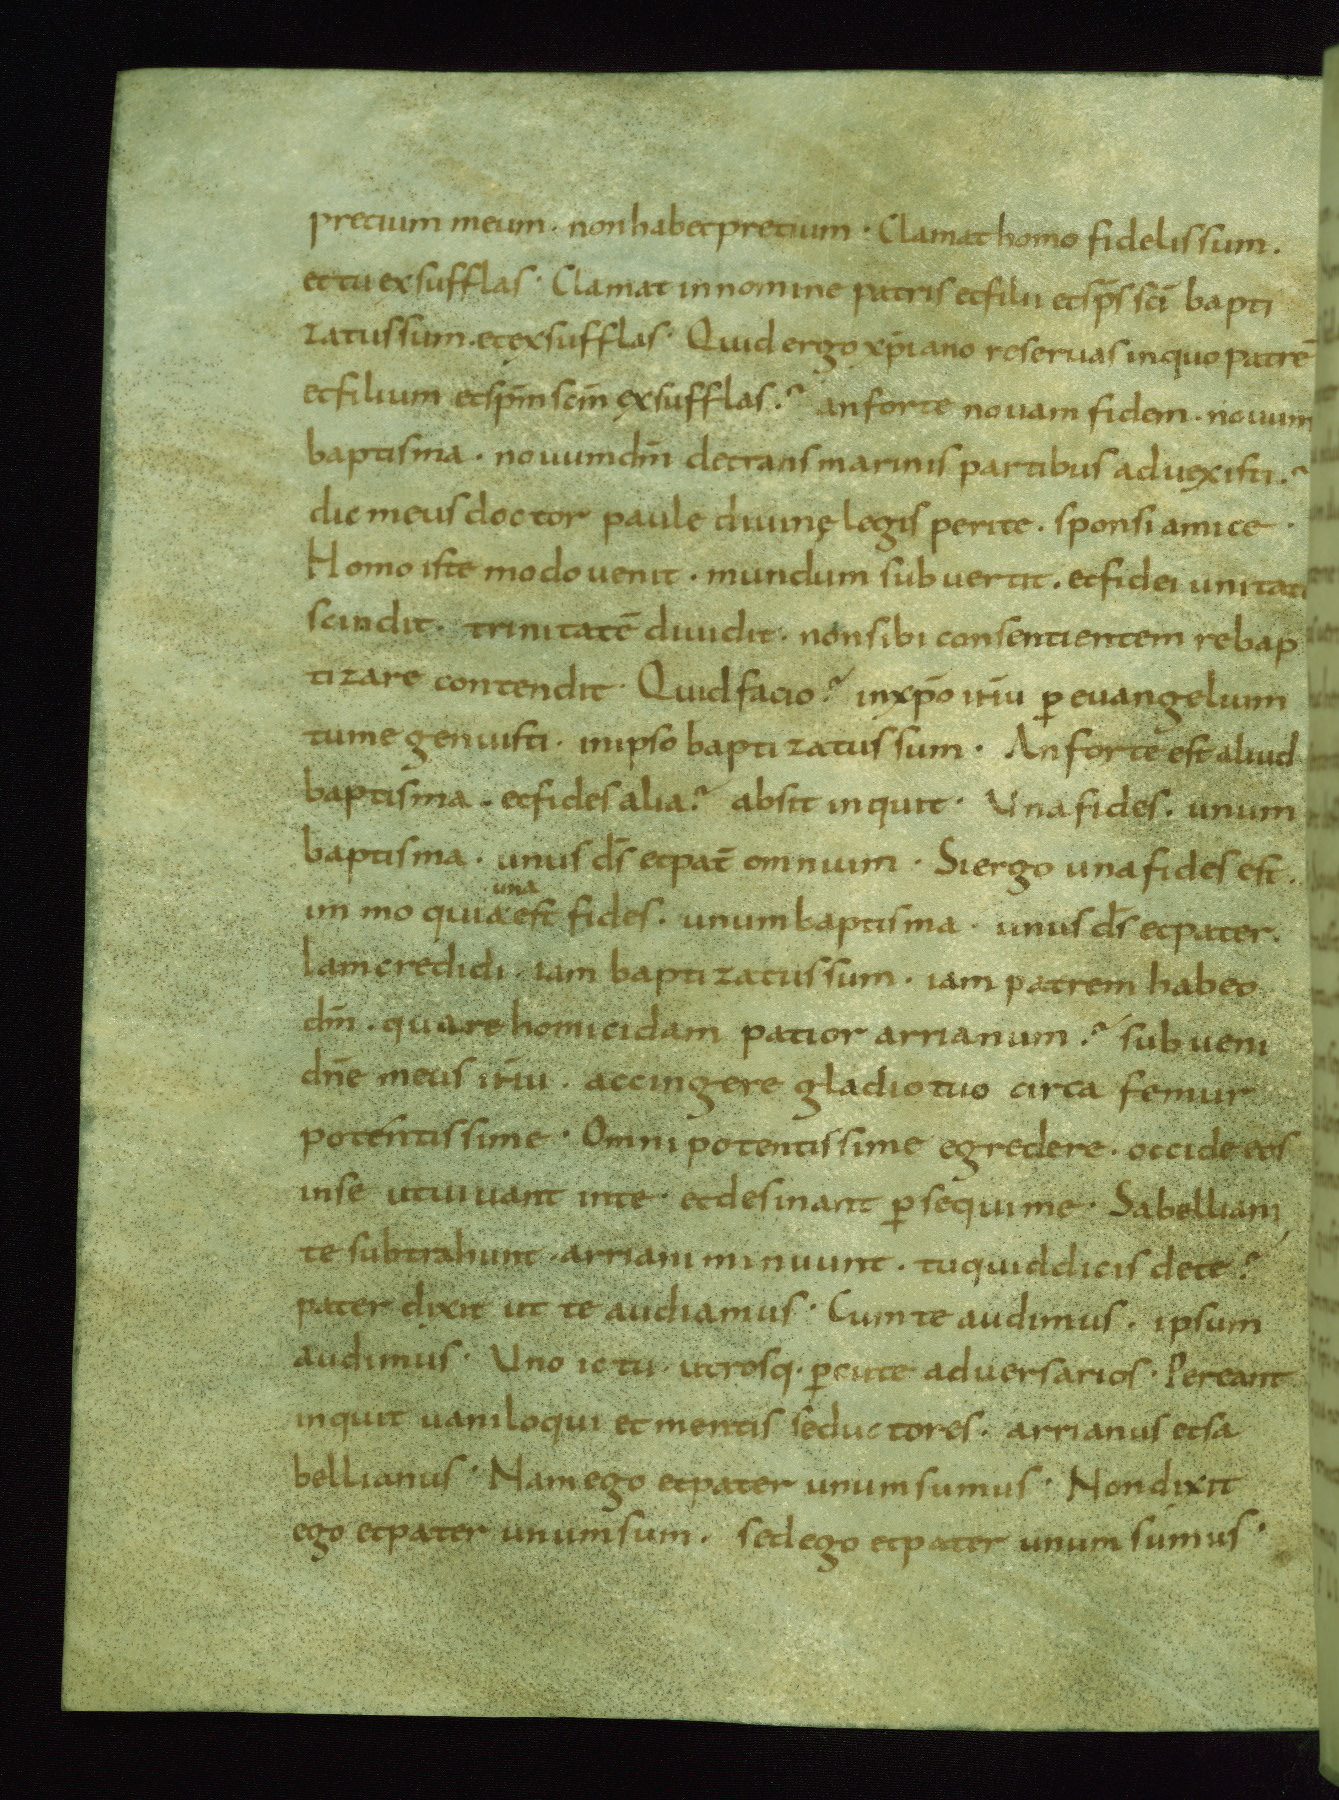 precium meum. non habet pretium. Clamat homo fidelis sum.
et tu exsufflas. Clamat in nomine patris et filii et sp̄s sc̄i bapti
zatus sum. et exsufflas. Quid ergo xp̄iano reservas in quo patrē
et filium et sp̄m sc̄m exsufflas? an forte novam fidem. novum
baptisma. novum dm̄ de transmarinis partibus aduexisti?
dic meus doctor paule divinę legis perite. sponsi amice.
Homo iste modo venit. mundum subvertit. et fidei unitatē
scindit. trinitatē dividit. non sibi consentientem rebap
tizare contendit. Quid facio? in xp̄o ih̄u ꝑ evangelium
tu me genuisti. in ipso baptizatus sum. An forte est aliud
baptisma. et fides alia? absit inquit. Una fides. unum
baptisma. unus ds̄ et pat̄ omnium. Si ergo una fides est.
immo quia una est fides. unum baptisma. unus ds̄ et pater.
Iam credidi. iam baptizatus sum. iam patrem habeo
dm̄. quare homicidam patior arrianum? subveni
dn̄e meus ih̄u. accingere gladio tuo circa femur
potentissime. Omnipotentissime egredere. occide eos
in se ut vivant in te. et desinant ꝑsequi me. Sabelliani
te subtrahunt. arriani minuunt. tu quid dicis de te?
pater dixit ut te audiamus. Cum te audimus. ipsum
audimus. Uno ictu. utrosq. ꝑcute adversarios. Pereant
inquit vaniloqui et mentis seductores. arrianus et sa
bellianus. Nam ego et pater unum sumus. Non dixit
ego et pater unum sum. sed ego et pater unum sumus.